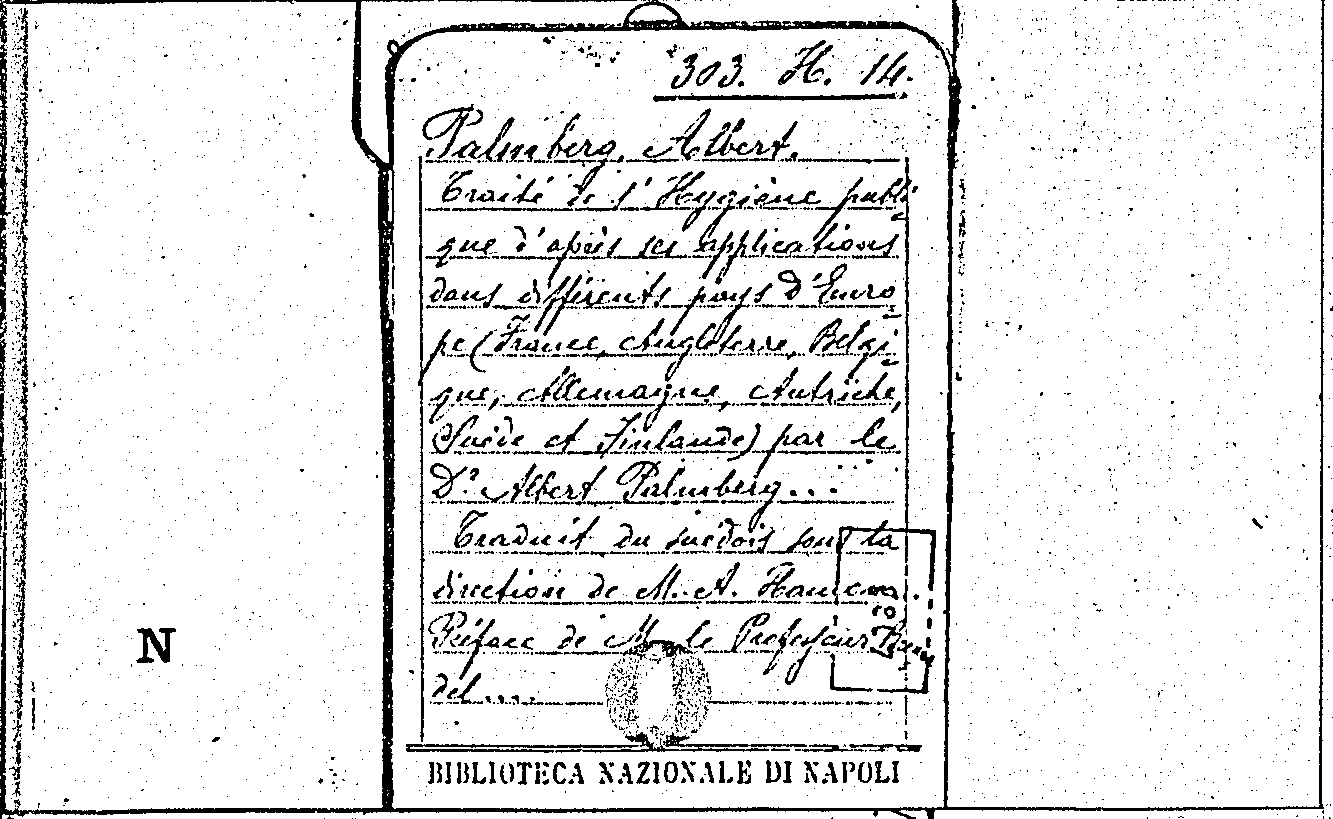 303. H. 14.
Palmberg, Albert.
Traité de l'Hygiène publi-
que d'après ses applications
dans différents pays d'Euro-
pe (France, Angleterre, Belgi-
que, Allemagne, Autriche,
Suède et Finlande) par le
Dr Albert Palmberg...
Traduit du suédois sous la
direction de M. A. Hamon.
Préface de M. le Professeur Brouar
del....
N
BIBLIOTECA NAZIONALE DI NAPOLI